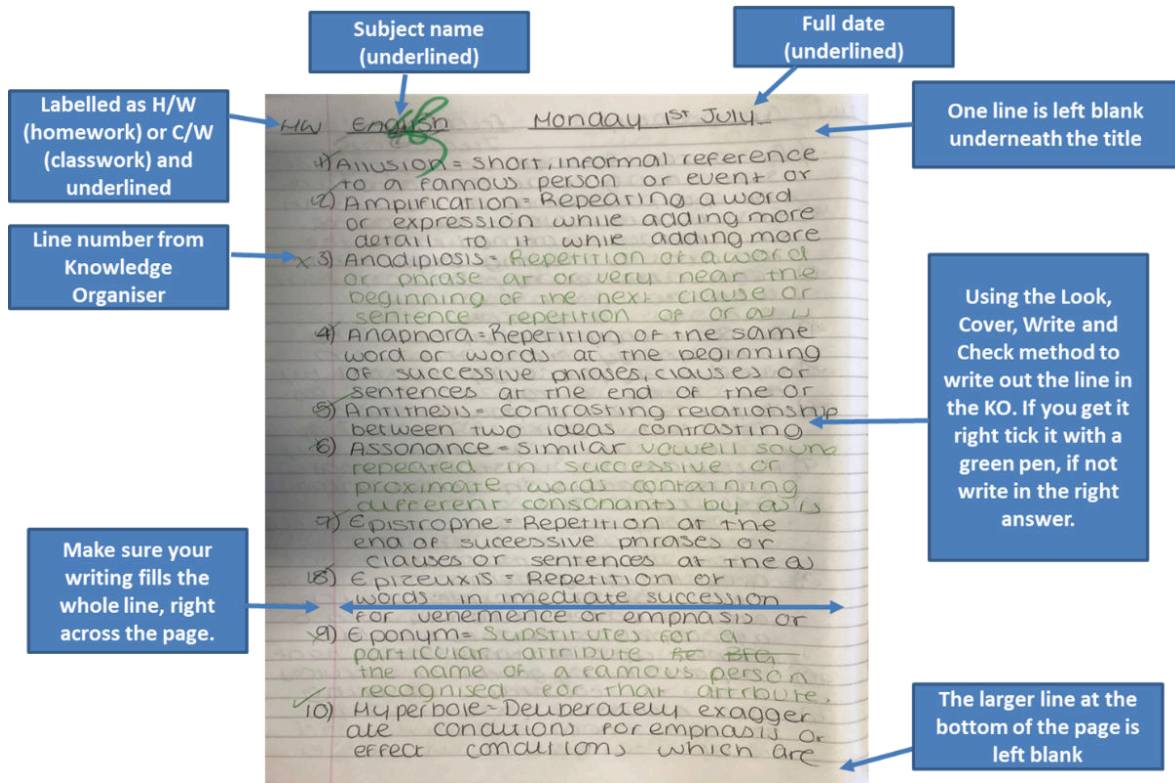 Subject name
(underlined)
Full date
(underlined)
Labelled as H/W
(homework) or C/W
(classwork) and
underlined
One line is left blank
underneath the title
Line number from
Knowledge
Organiser
Using the Look,
Cover, Write and
Check method to
write out the line in
the KO. If you get it
right tick it with a
green pen, if not
write in the right
answer.
Make sure your
writing fills the
whole line, right
across the page.
The larger line at the
bottom of the page is
left blank
HW English Monday 1st July
1) Allusion = short, informal reference
to a famous person or event or
2) Amplification = Repearing a word
or expression while adding more
detail to it while adding more
3) Anadiplosis = Repetition of a word
or phrase at or very near the
beginning of the next clause or
sentence repetition of or
4) Anaphora = Repetition of the same
word or words at the beginning
of successive phrases, clauses or
sentences at the end of the or
5) Antithesis = contrasting relationship
between two ideas contrasting
6) Assonance = similar vowell sound
repeated in successive or
proximate words containing
different consonants by
7) Epistrophe = Repetition at the
end of successive phrases or
clauses or sentences at the
8) Epizeuxis = Repetition or
words in imediate succession
for venemence or emphasis or
9) Eponym = Substitutes for a
particular attribute
the name of a famous person
recognised for that attribute.
10) Hyperbole = Deliberately exagger
ate conditions for emphasis or
effect conditions which are